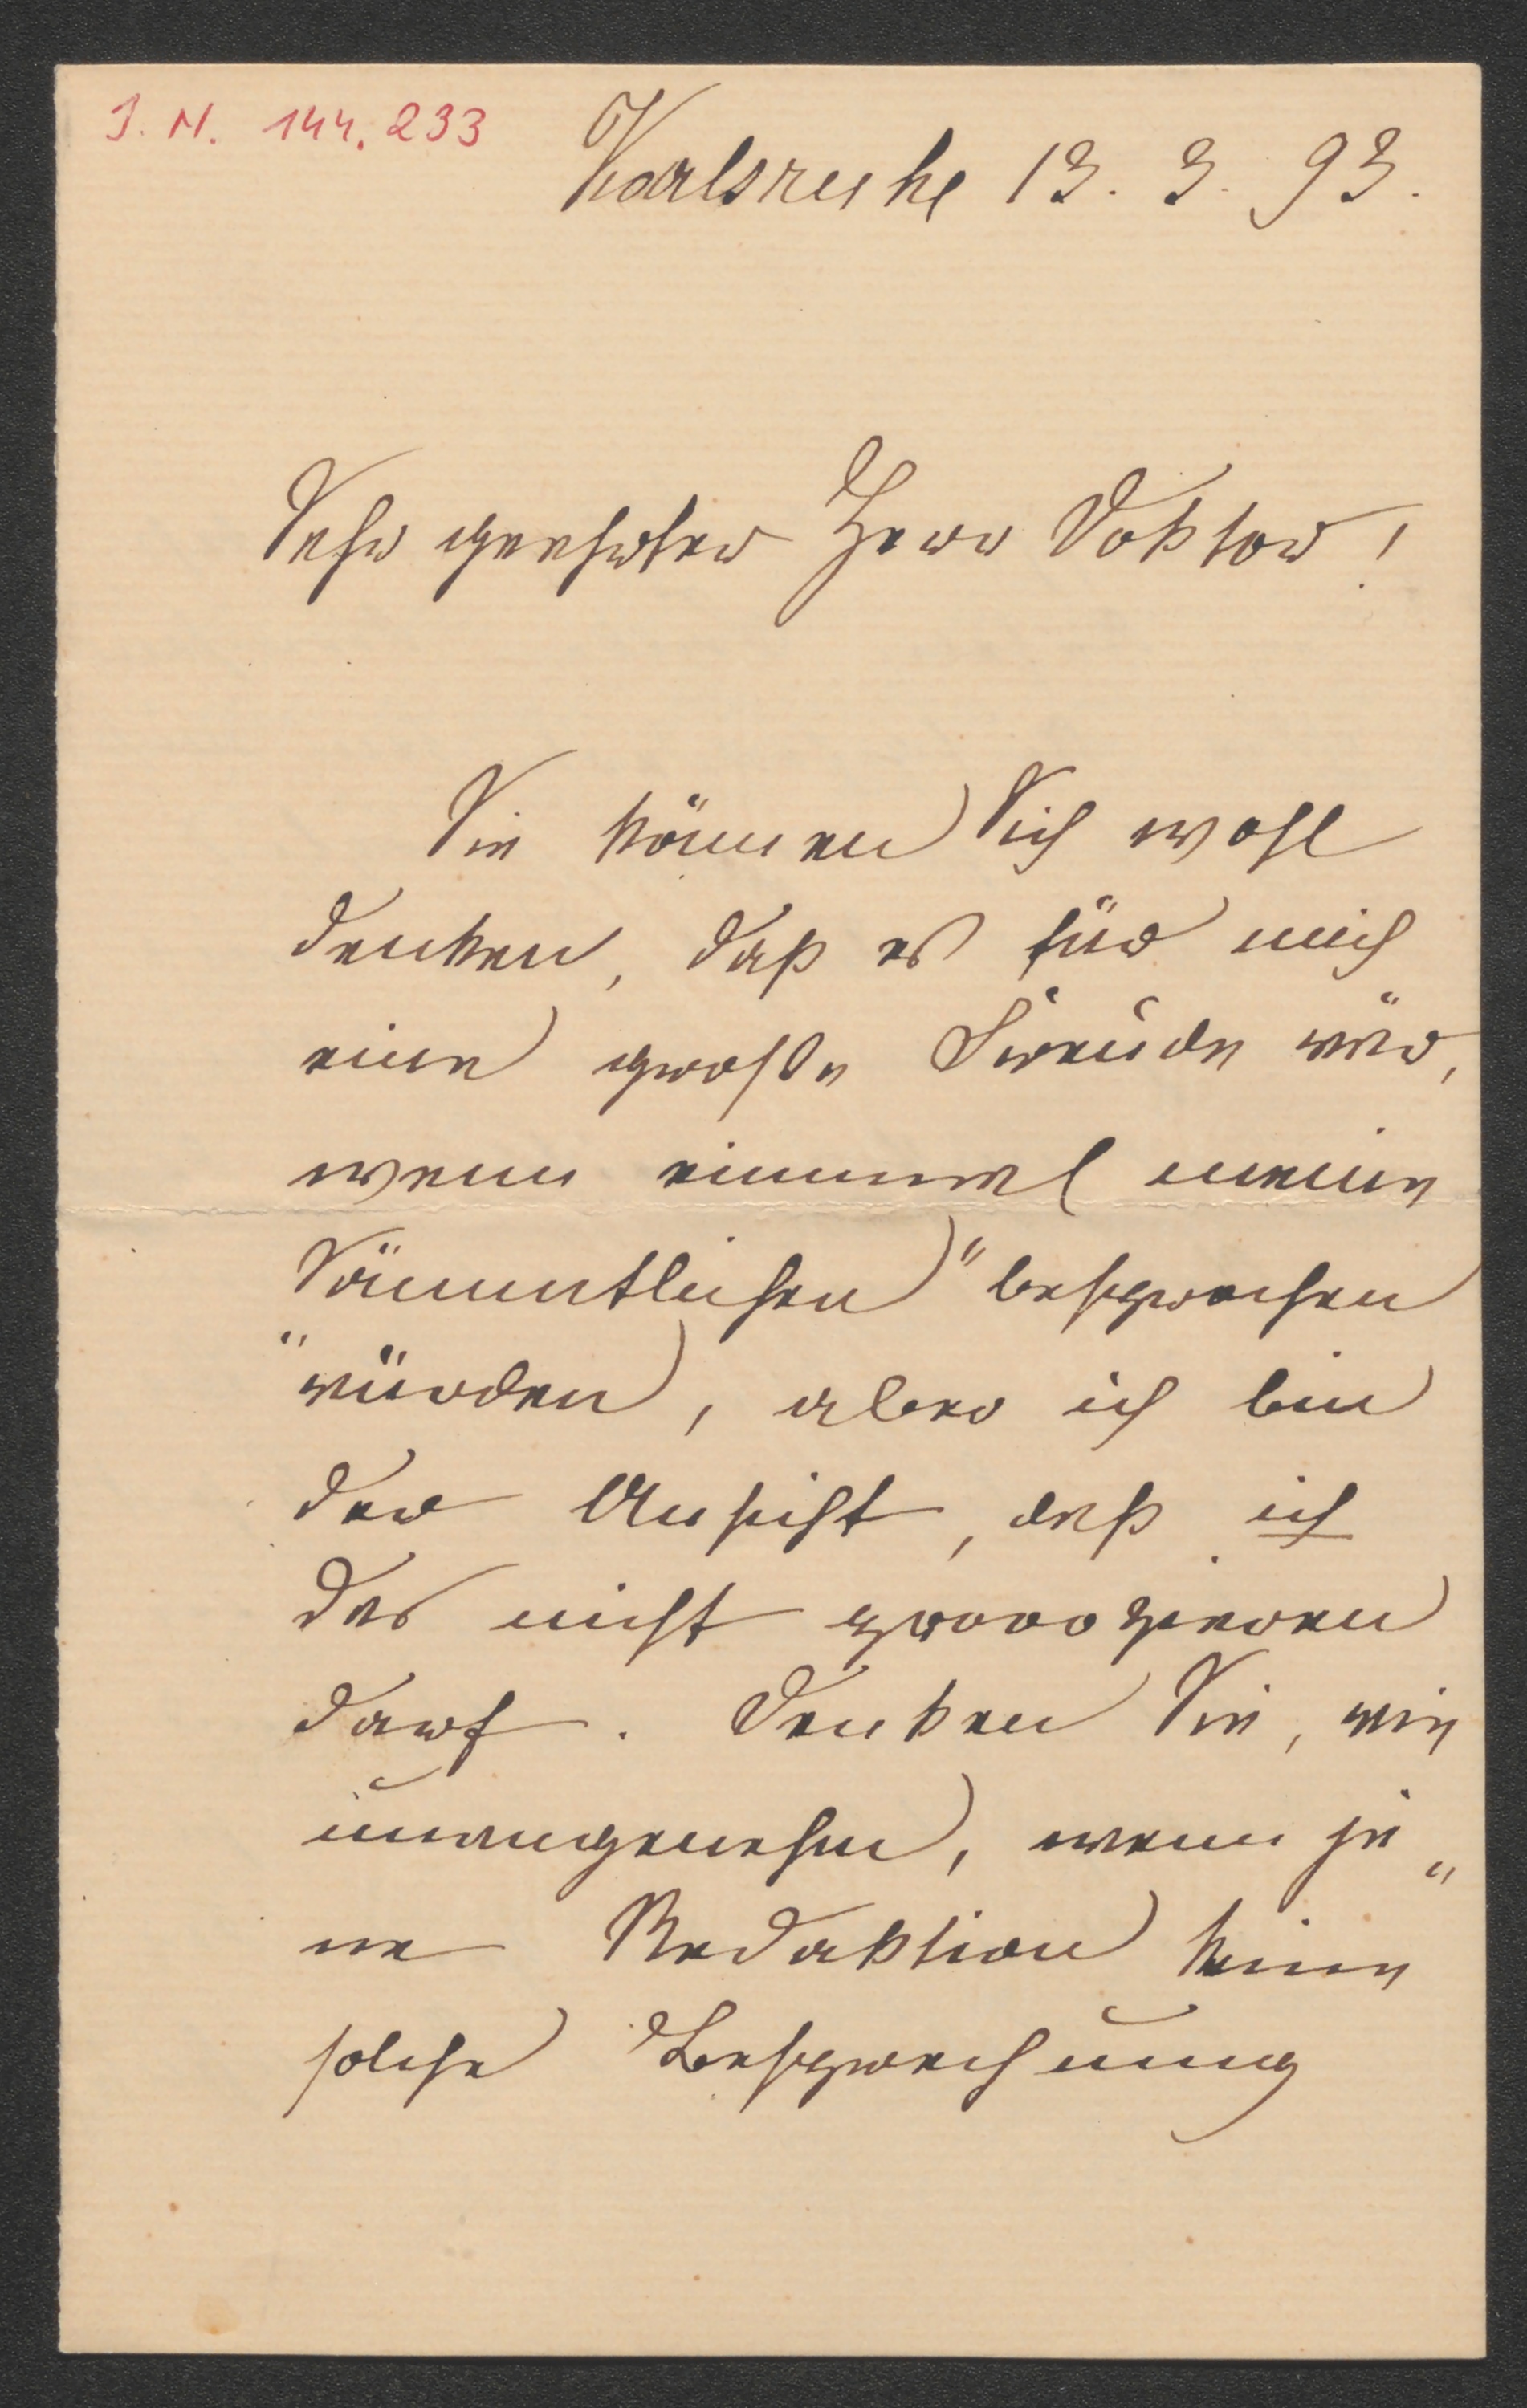 I. N. 144.233
Karlsruhe 13. 3. 93.
Sehr geehrter Herr Doktor!
Sie können Sich wohl
denken, daß es für mich
eine große Freude wär,
wenn einmal meine
Sämmtlichen" besprochen
"würden, aber ich bin
der Ansicht, daß ich
das nicht provozieren
darf. Denken Sie, wie
unangenehm, wenn je„
ne Redaktion keine
solche Besprechung